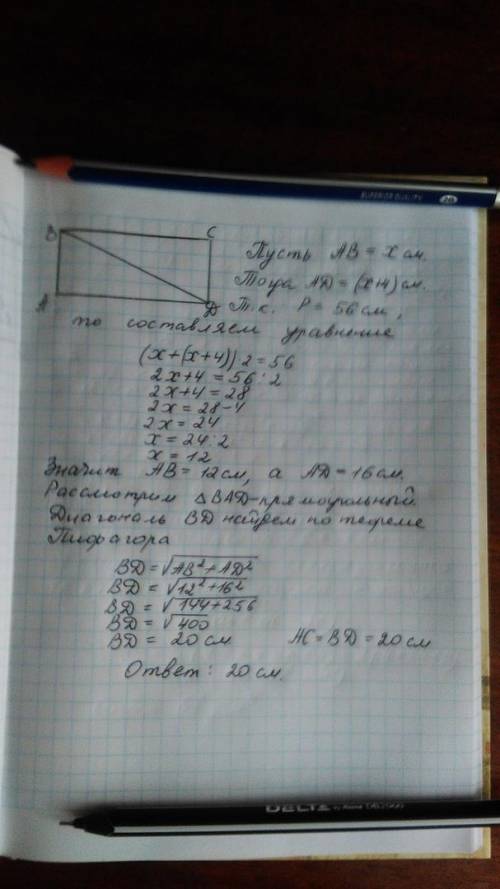 SUPERIOR QUALITY 2B
B C
A D
Пусть AB = x см.
Тогда AD = (x+4) см.
Т.к. P = 56 см,
то составляем уравнение
(x+(x+4))·2=56
2x+4 = 56:2
2x+4 = 28
2x = 28-4
2x = 24
x = 24:2
x = 12
Значит AB = 12 см, а AD = 16 см.
Рассмотрим △BAD-прямоугольный
Диагональ BD найдем по теореме
Пифагора
BD = √AB²+AD²
BD = √12²+16²
BD = √144+256
BD = √400
BD = 20 см AC = BD = 20 см
Ответ: 20 см.
DELTA